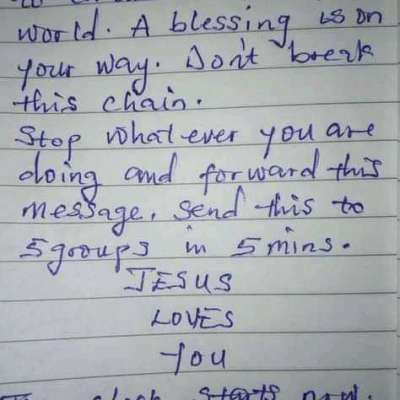 world. A blessing is on
your way. Don't break
this chain.
Stop whatever you are
doing and forward this
message, send this to
5 groups in 5 mins.
JESUS
LOVES
You
clock starts now.